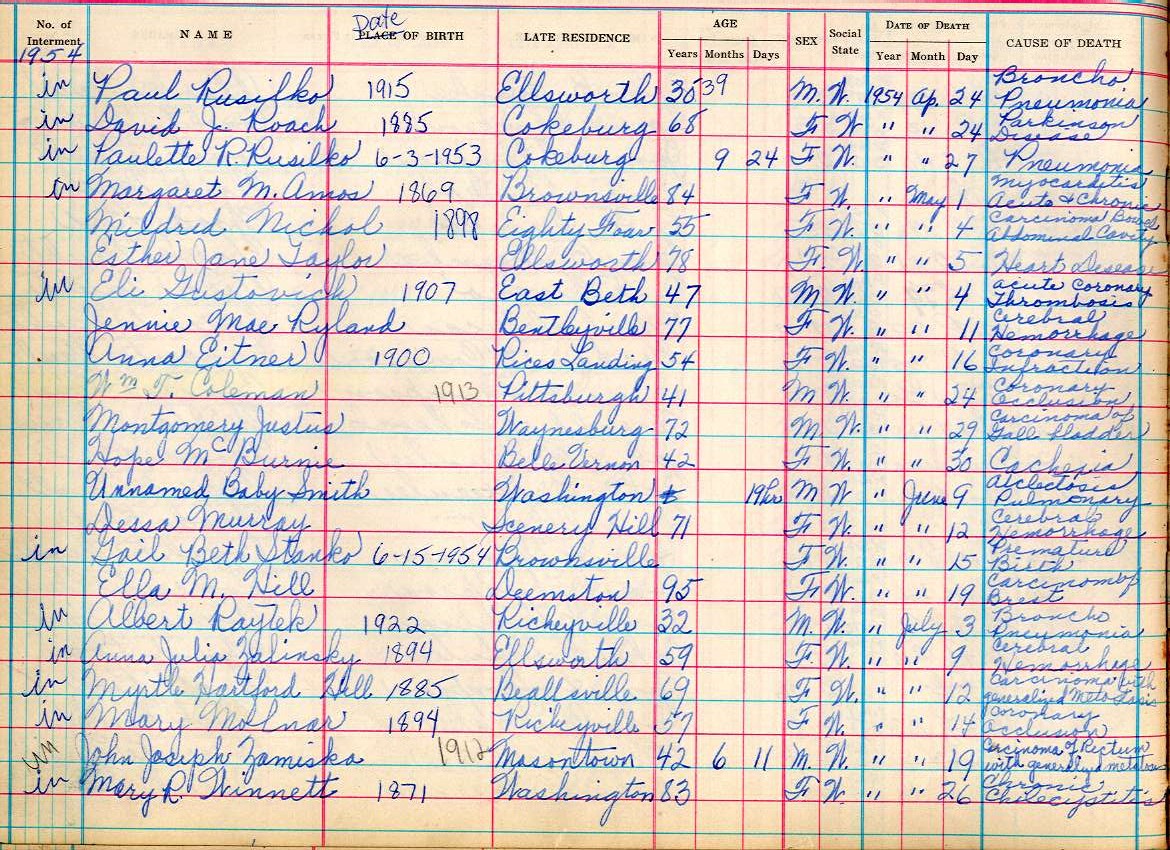 No. of Interment NAME Date PLACE OF BIRTH LATE RESIDENCE AGE Years Months Days SEX Social State DATE OF DEATH Year Month Day CAUSE OF DEATH
1954
in Paul Rusilko 1915 Ellsworth 38 39 M. W. 1954 Ap. 24 Broncho Pneumonia
in David J. Roach 1885 Cokeburg 68 F W " " 24 Parkinson Disease
in Paulette R. Rusilko 6-3-1953 Cokeburg 9 24 F W. " " 27 Pneumonia
in Margaret M. Amos 1869 Brownsville 84 F W. " May 1 Myocarditis Acute & Chronic
Mildred Nichol 1898 Eighty Four 55 F W. " " 4 Carcinoma Bowel Abdominal Cavity
Esther Jane Taylor Ellsworth 78 F. W. " " 5 Heart Desease
in Eli Gustovich 1907 East Beth 47 M W. " " 4 acute Coronary Thrombosis
Jennie Mae Ryland Bentleyville 77 F W. " " 11 Cerebral Hemorrhage
Anna Eitner 1900 Rices Landing 54 F W. " " 16 Coronary Infraction
Wm T. Coleman 1913 Pittsburgh 41 M W. " " 24 Coronary Occlusion
Montgomery Justus Waynesburg 72 M W. " " 29 Carcinoma of Gall bladder
Hope McBurnie Belle Vernon 42 F W. " " 30 Cachexia
Unnamed Baby Smith Washington 19 hr M W " June 9 Atelectosis Pulmonary
Dessa Murray Scenery Hill 71 F W. " " 12 Cerebral Hemorrhage
in Gail Beth Stanko 6-15-1954 Brownsville F W. " " 15 Premature Birth
Ella M. Hill Deemston 95 F W. " " 19 Carcinoma of Brest
in Albert Raytek 1922 Richeyville 32 M. W. " July 3 Broncho Pneumonia
in Anna Julia Zalinsky 1894 Ellsworth 59 F. W. " " 9 Cerebral Hemorrhage
in Myrtle Hartford Hill 1885 Beallsville 69 F W. " " 12 Carcinoma with generalized Metostasis
in Mary Molnar 1894 Richeyville 57 F W. " " 14 Coronary Occlusion
in John Joseph Zamiska 1912 Masontown 42 6 11 M. W. " " 19 Carcinoma of Rectum with generalized
in Mary R. Winnett 1871 Washington 83 F W. " " 26 Chronic